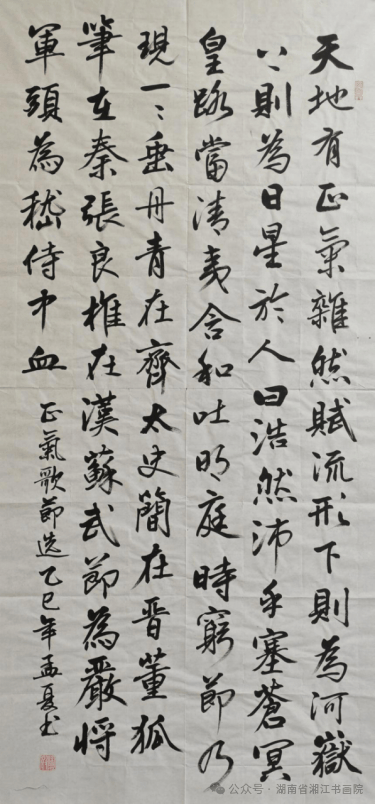 天地有正氣雜然賦流形下則為河嶽
上則為日星於人曰浩然沛乎塞蒼冥
皇路當清夷含和吐明庭時窮節乃
現一〻垂丹青在齊太史簡在晉董狐
筆在秦張良椎在漢蘇武節為嚴將
軍頭為嵇侍中血
正氣歌節選乙巳年孟夏书
公众号 · 湖南省湘江书画院